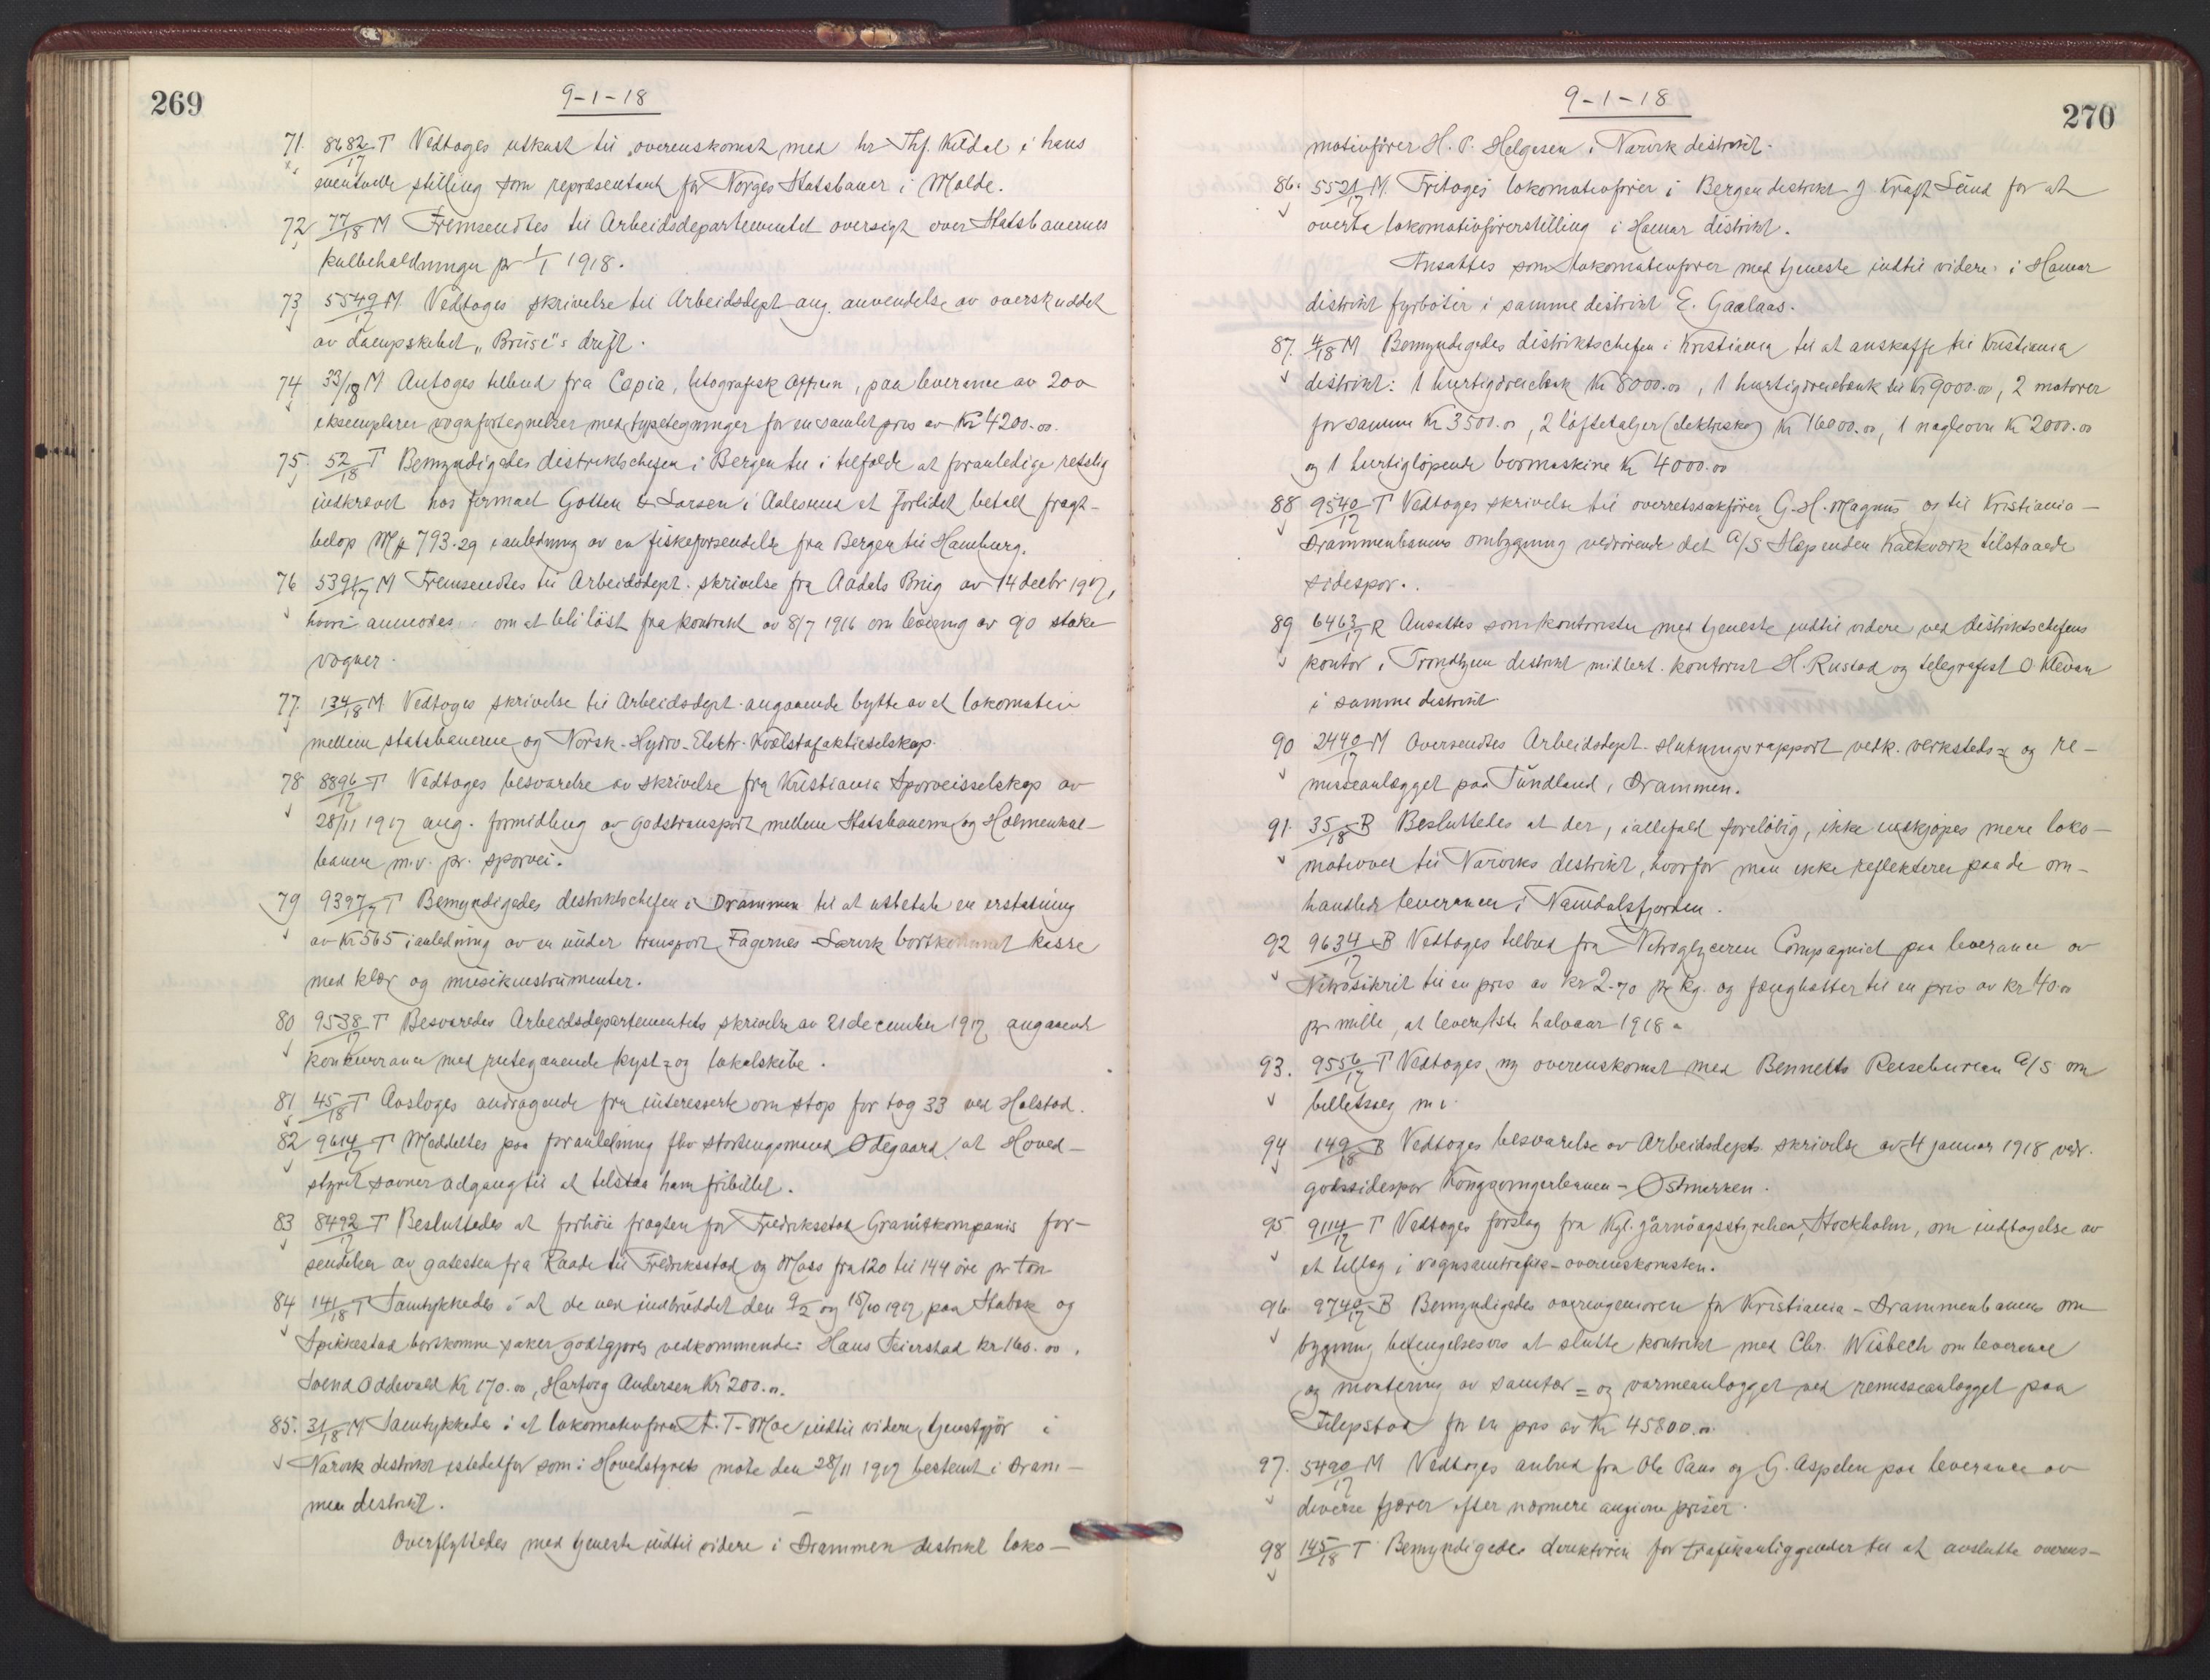 269
9-1-18
71. 8682/17 T Vedtoges utkast til overenskomst med hr Thj. Kildal i hans
eventuelle stilling som repræsentant for Norges Statsbaner i Molde.
72 77/18 M Fremsendtes til Arbeidsdepartementet oversigt over Statsbanernes
kulbeholdninger pr 1/1 1918.
73 5549/17 M Vedtoges skrivelse til Arbeidsdept ang. anvendelse av overskuddet
av dampskibet „Bruse"s drift.
74 33/18 M Antoges tilbud fra Copia, litografisk Officin, paa leverance av 200
eksemplarer vognfortegnelser med typetegninger for en samlet pris av Kr 4200.00.
75. 52/18 T Bemyndigedes distriktschefen i Bergen til i tilfælde at foranledige retslig
indkrævet hos firmaet Gotten & Larsen i Aalesund et forlidet betalt fragt-
beløp Mk 793.29 i anledning av en fiskeforsendelse fra Bergen til Hamburg.
76 5391/17 M Fremsendtes til Arbeidsdept. skrivelse fra Aadals Brug av 14 decbr 1917,
hvori anmodes om at bli löst fra kontrakt av 8/7 1916 om levering av 90 stake
vogner.
77. 134/18 M. Vedtoges skrivelse til Arbeidsdept. angaaende bytte av et lokomotiv
mellem statsbanerne og Norsk-Hydro-Elektr. Kvælstofaktieselskap.
78 8896/17 T Vedtoges besvarelse av skrivelse fra Kristiania Sporveisselskap av
28/11 1917 ang. formidling av godstransport mellem Statsbanerne og Holmenkol-
banen m.v. pr. sporvei.
79 9397/17 T Bemyndigedes distriktschefen i Drammen til at utbetale en erstatning
av Kr 565 i anledning av en under transport Fagernes-Larvik bortkommet kasse
med klær og musikinstrumenter.
80 9538/17 T Besvaredes Arbeidsdepartementets skrivelse av 21 december 1917 angaaende
konkurrance med rutegaaende kyst= og lokalskibe.
81 45/18 T Avsloges andragende fra interesserte om stop for tog 33 ved Holstad.
82 9614/17 T Meddeltes paa foranledning fhv stortingsmand Ødegaard, at Hoved-
styret savner adgang til at tilstaa ham fribillet.
83 8492/17 T Besluttedes at forhöie fragten for Fredriksstad Granitkompanis for-
sendelser av gatesten fra Raade til Fredriksstad og Moss fra 120 til 144 öre pr ton
84 141/18 T Samtykkedes i at de ved indbruddet den 9/2 og 15/10 1917 paa Stabæk og
Spikkestad bortkomne saker godtgjøres vedkommende: Hans Seierstad kr 160.00,
Svend Oddevald Kr 170.00, Hartvig Andersen Kr 200.00.
85. 31/18 M Samtykkedes i at lokomotivförer A. T. Moe indtil videre tjenstgjör i
Narvik distrikt istedetfor som i Hovedstyrets möte den 28/11 1917 bestemt i Dram-
men distrikt.
Overflyttedes med tjeneste indtil videre i Drammen distrikt loko-
270
9-1-18
motivförer H. P. Helgesen i Narvik distrikt.
86. 5521/17 M. Fritoges lokomotivförer i Bergen distrikt J Kraft Lund for at
overta lokomotivförerstilling i Hamar distrikt.
Ansattes som lokomotivförer med tjeneste indtil videre i Hamar
distrikt fyrböter i samme distrikt E. Gaalaas.
87. 4/18 M Bemyndigedes distriktschefen i Kristiania til at anskaffe til Kristiania
distrikt: 1 hurtigdreiebænk Kr 8000.00, 1 hurtigdreiebænk til Kr 9000.00, 2 motorer
for samme Kr 3500.00, 2 löftetaljer (elektriske) Kr 16000.00, 1 nagleovn Kr 2000.00
og 1 hurtiglöpende bormaskine Kr 4000.00
88 9540/17 T Vedtoges skrivelse til overretssakförer G. H. Magnus og til Kristiania-
Drammenbanens ombygning vedrörende det A/S Slependen Kalkværk tilstaaede
sidespor.
89 6463/17 R Ansattes som kontorister med tjeneste indtil videre ved distriktschefens
kontor i Trondhjem distrikt midlert. kontorist H. Rustad og telegrafist O. Klevan
i samme distrikt
90 2440/17 M Oversendtes Arbeidsdept. slutningsrapport vedk. verksteds= og re-
misseanlægget paa Sundland, Drammen.
91. 35/18 B Besluttedes at der, iallefald foreløbig, ikke indkjøpes mere loko-
motivved til Narviks distrikt, hvorfor man ikke reflekterer paa de om-
handlede leverancer i Namdalsfjorden.
92 9634/17 B Vedtoges tilbud fra Nitroglycerin Compagniet paa leverance av
Nitrosikrit til en pris av Kr 2.70 pr kg. og fænghætter til en pris av kr 40.00
pr mille, at levere 1ste halvaar 1918.
93. 9556/17 T Vedtoges ny overenskomst med Bennetts Reisebureau A/S om
billetsalg m.v.
94 149/18 B Vedtoges besvarelse av Arbeidsdepts. skrivelse av 4 januar 1918 vedr.
godssidespor Kongsvingerbanen - Østmarken.
95 9114/17 T Vedtoges forslag fra Kgl. Järnvägsstyrelsen, Stockholm, om indtagelse av
et tillæg i vognsamtrafik-overenskomsten.
96. 9740/17 B Bemyndigedes overingeniören for Kristiania-Drammenbanens om-
bygning betingelsesvis at slutte kontrakt med Chr. Wisbech om leverance
og montering av sanitær= og varmeanlægget ved remisseanlægget paa
Filipstad for en pris av Kr 45800.00.
97. 5490/17 M Vedtoges anbud fra Ole Paus og G. Aspelen paa leverance av
diverse fjærer efter nærmere angivne priser.
98 145/18 T Bemyndigedes direktören for trafikanliggender til at avslutte overens-